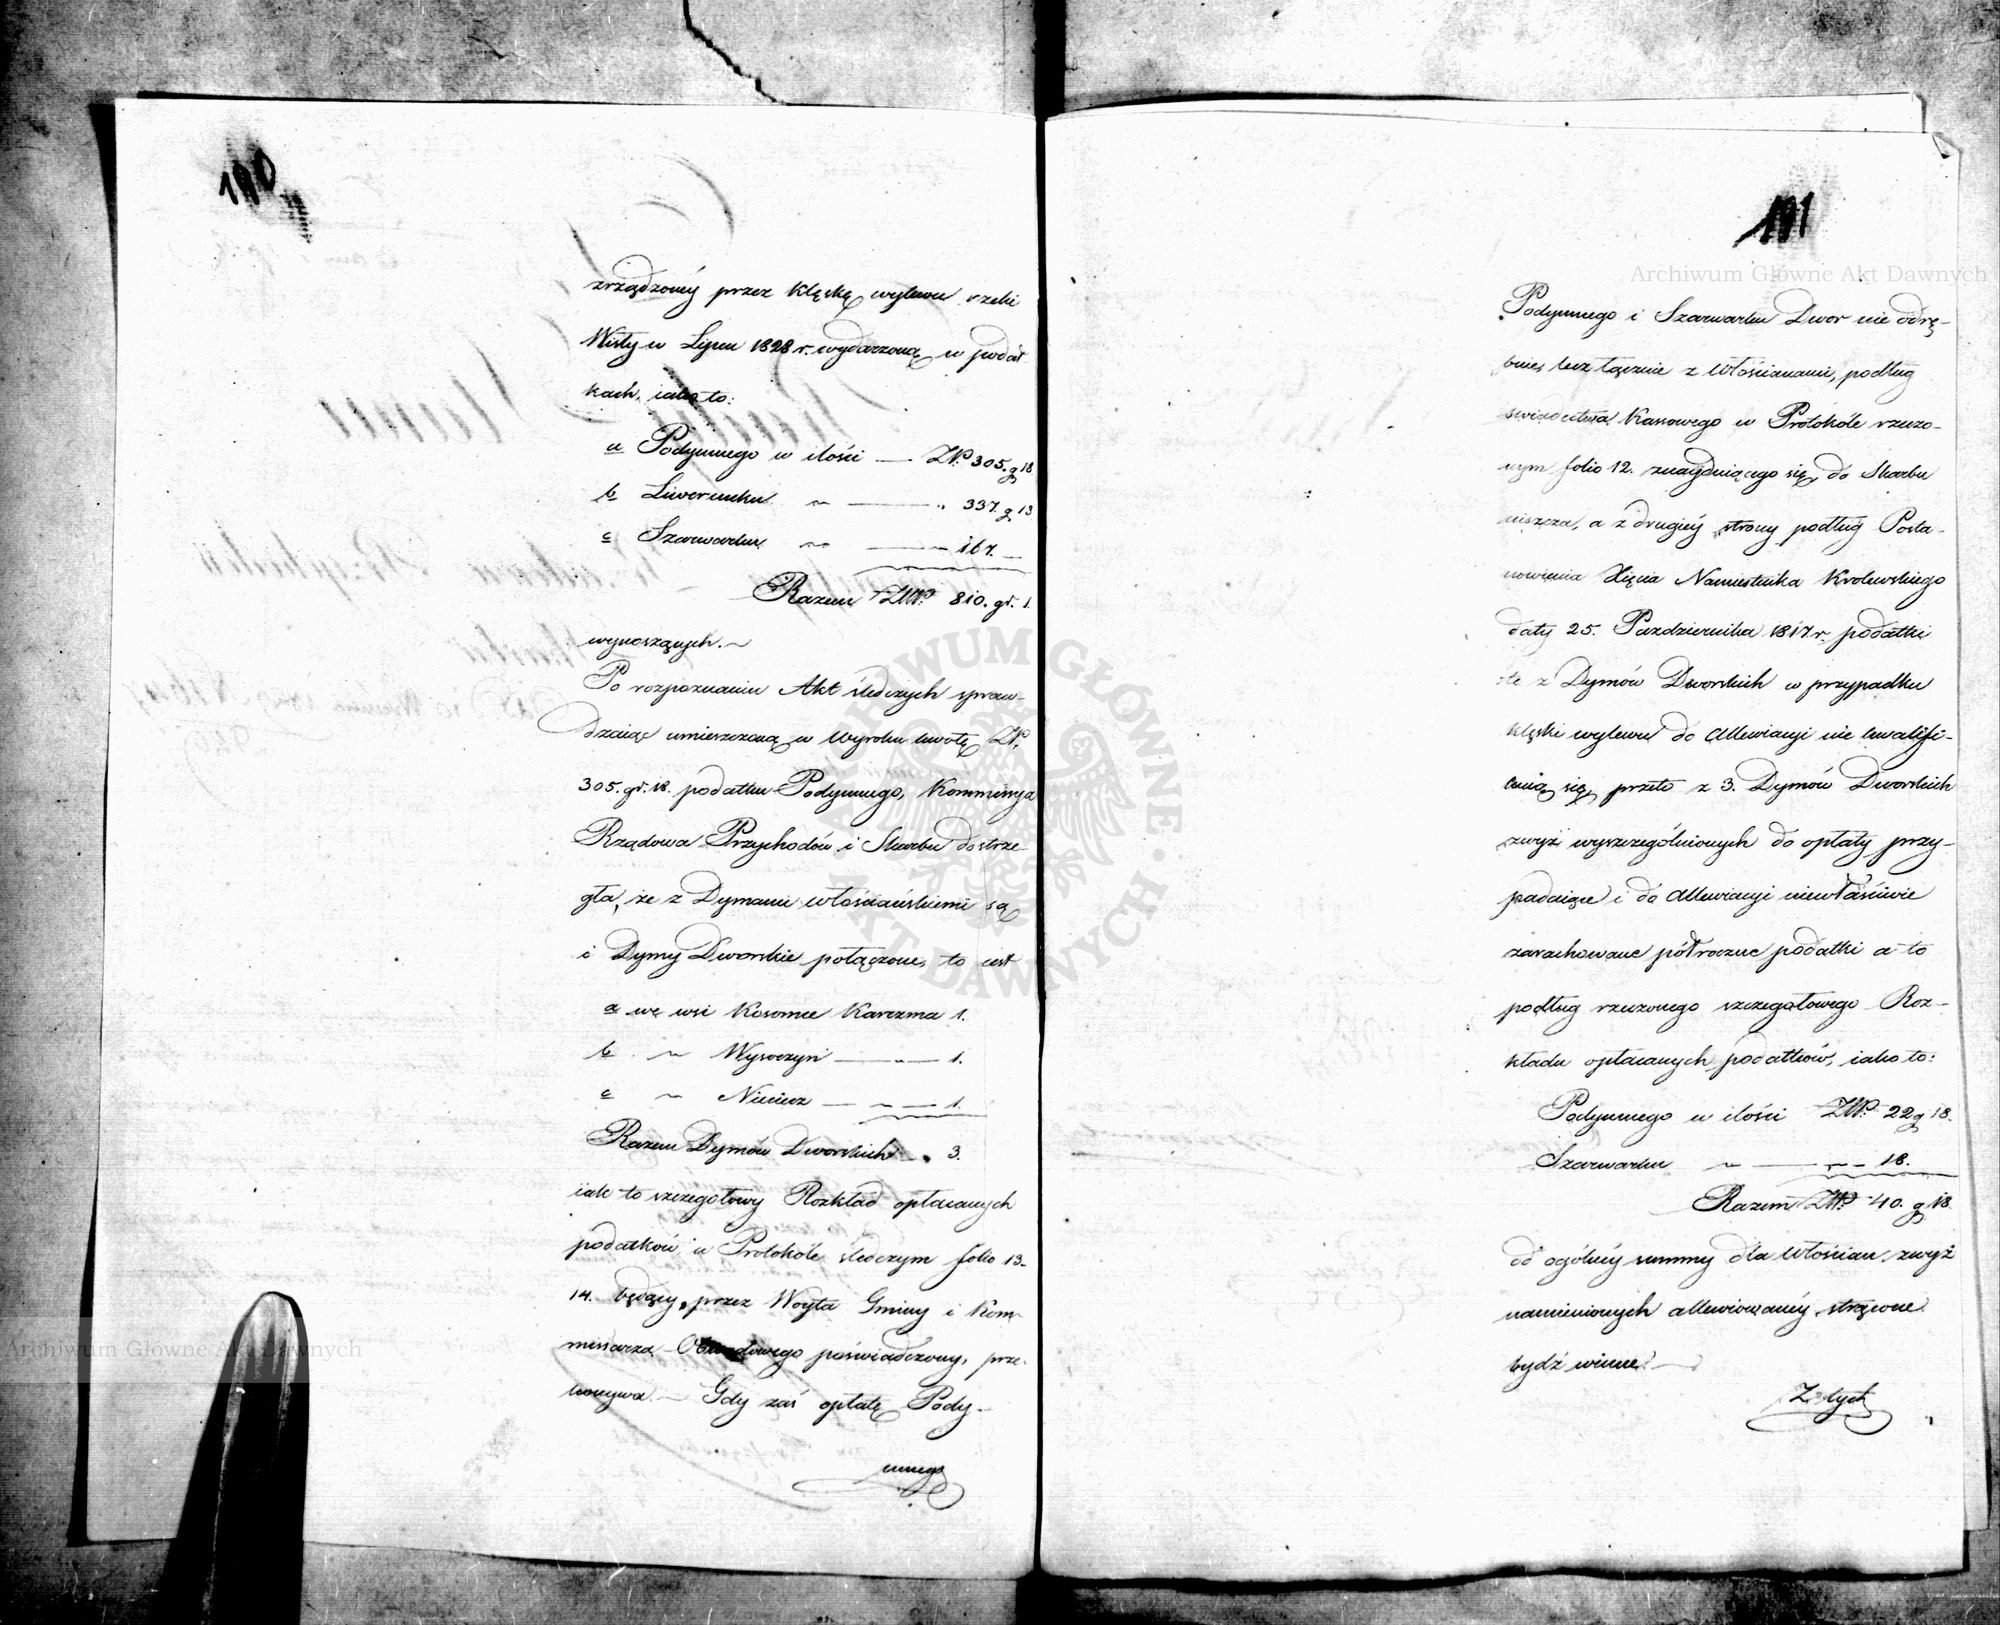 190
zrządzonéy przez klęskę wylewu rzeki
Wisły w Lipcu 1828 r. wydarzoną w podat
kach, iako to:
a Podymnego w ilości — ZłP. 305. g 18
b Liwerunku " — " 337. g 13
c Szarwarku " — " 167. —
Razem ZłP. 810. gr. 1.
wynoszących. —
Po rozpoznaniu Akt śledczych spraw-
dzaiąc umieszczoną w Wyroku kwotę ZłP.
305. gr. 18. podatku Podymnego, Kommissya
Rządowa Przychodów i Skarbu dostrze-
gła, że z Dymami włościańskiemi są
i Dymy Dworskie połączone, to iest
a we wsi Kosomce Karczma 1.
b " Wysoczyn — " — 1.
c " Nieciecz — " — 1.
Razem Dymów Dworskich — 3.
iak to szczegołowy Rozkład opłacanych
podatków w Protokóle śledczym folio 13.
14. będący, przez Woyta Gminy i Kom-
missarza Obwodowego poświadczony, prze-
konywa. — Gdy zaś opłatę Pody-
mnego
191
Archiwum Główne Akt Dawnych
Podymnego i Szarwarku Dwor nie odrę-
bnie, lecz łącznie z Włościanami, podług
świadectwa Kassowego w Protokóle rzeczo-
nym folio 12. znayduiącego się, do Skarbu
uiszcza, a z drugiéy strony podług Posta-
nowienia Xięcia Namiestnika Krolewskiego
daty 25. Pazdziernika 1817 r. podatki
te z Dymów Dworskich w przypadku
klęski wylewu do Allewiacyi nie kwalifi-
kuią się, przeto z 3. Dymów Dworskich
zwyż wyszczególnionych do opłaty przy-
padaiące i do Allewiacyi niewłaściwie
zarachowane półroczne podatki a to
podług rzeczonego szczegołowego Roz-
kładu opłacanych podatków, iako to:
Podymnego w ilości ZłP. 22 g 18.
Szarwarku " — " — 18.
Razem ZłP. 40. g 18
od ogólnéy summy dla Włościan, zwyż
namienionych allewiowanéy, strącone
bydź winne. —
Z tych
ARCHIWUM GŁÓWNE AKT DAWNYCH
Archiwum Główne Akt Dawnych